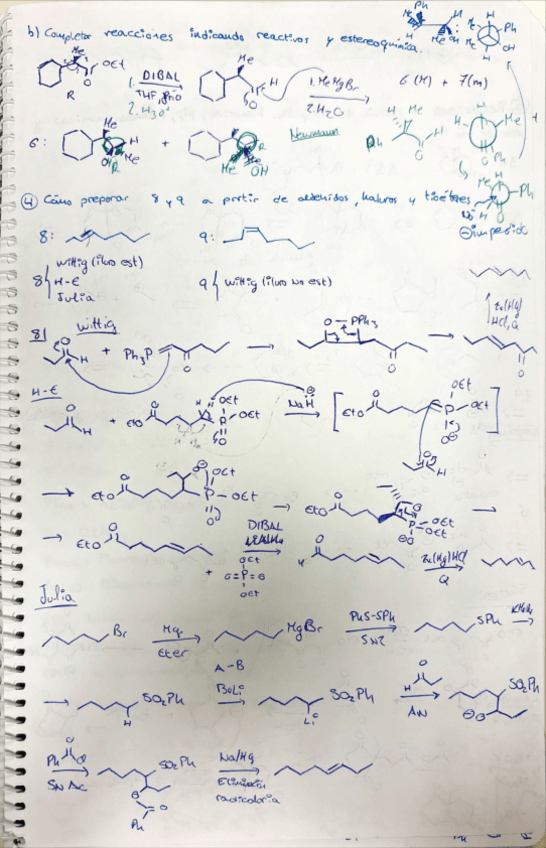 b) Completar reacciones indicando reactivos y estereoquímica.
Ph H Me Me OH H H Ph Me OH
Me OEt O R
1. DIBAL
THF, frío
2. H3O+
Me H O
1. MeMgBr
2. H2O
6 (M) + 7(m)
6: Me H OH R + R Me OH
Newmann
Ph H Me O H H Me H O Ph
4 Cómo preparar 8 y 9 a partir de aldehidos, haluros y tioéteres
8: 9:
8 Wittig (iluro est)
H-E
Julia
9 Wittig (iluro no est)
Zn(Hg)
HCl, Q
8) Wittig
O H + Ph3P O → O PPh3 O → O
H-E
O H + EtO O H H OEt P OEt O
NaH
EtO O OEt P OEt O
O H
→ EtO O O OEt P OEt O → EtO O O P OEt OEt O →
→ EtO O
DIBAL
+ OEt O=P=O OEt
H O
Zn(Hg) HCl
Q
Julia
Br
Mg
Eter
MgBr
A-B
PhS-SPh
SN2
SPh
KMnO4
→ SO2Ph H
BuLi
SO2Ph Li
O H
AN
SO2Ph O
Ph O
SN Ac
SO2Ph O O Ph
Na/Hg
Eliminación
radicalaria